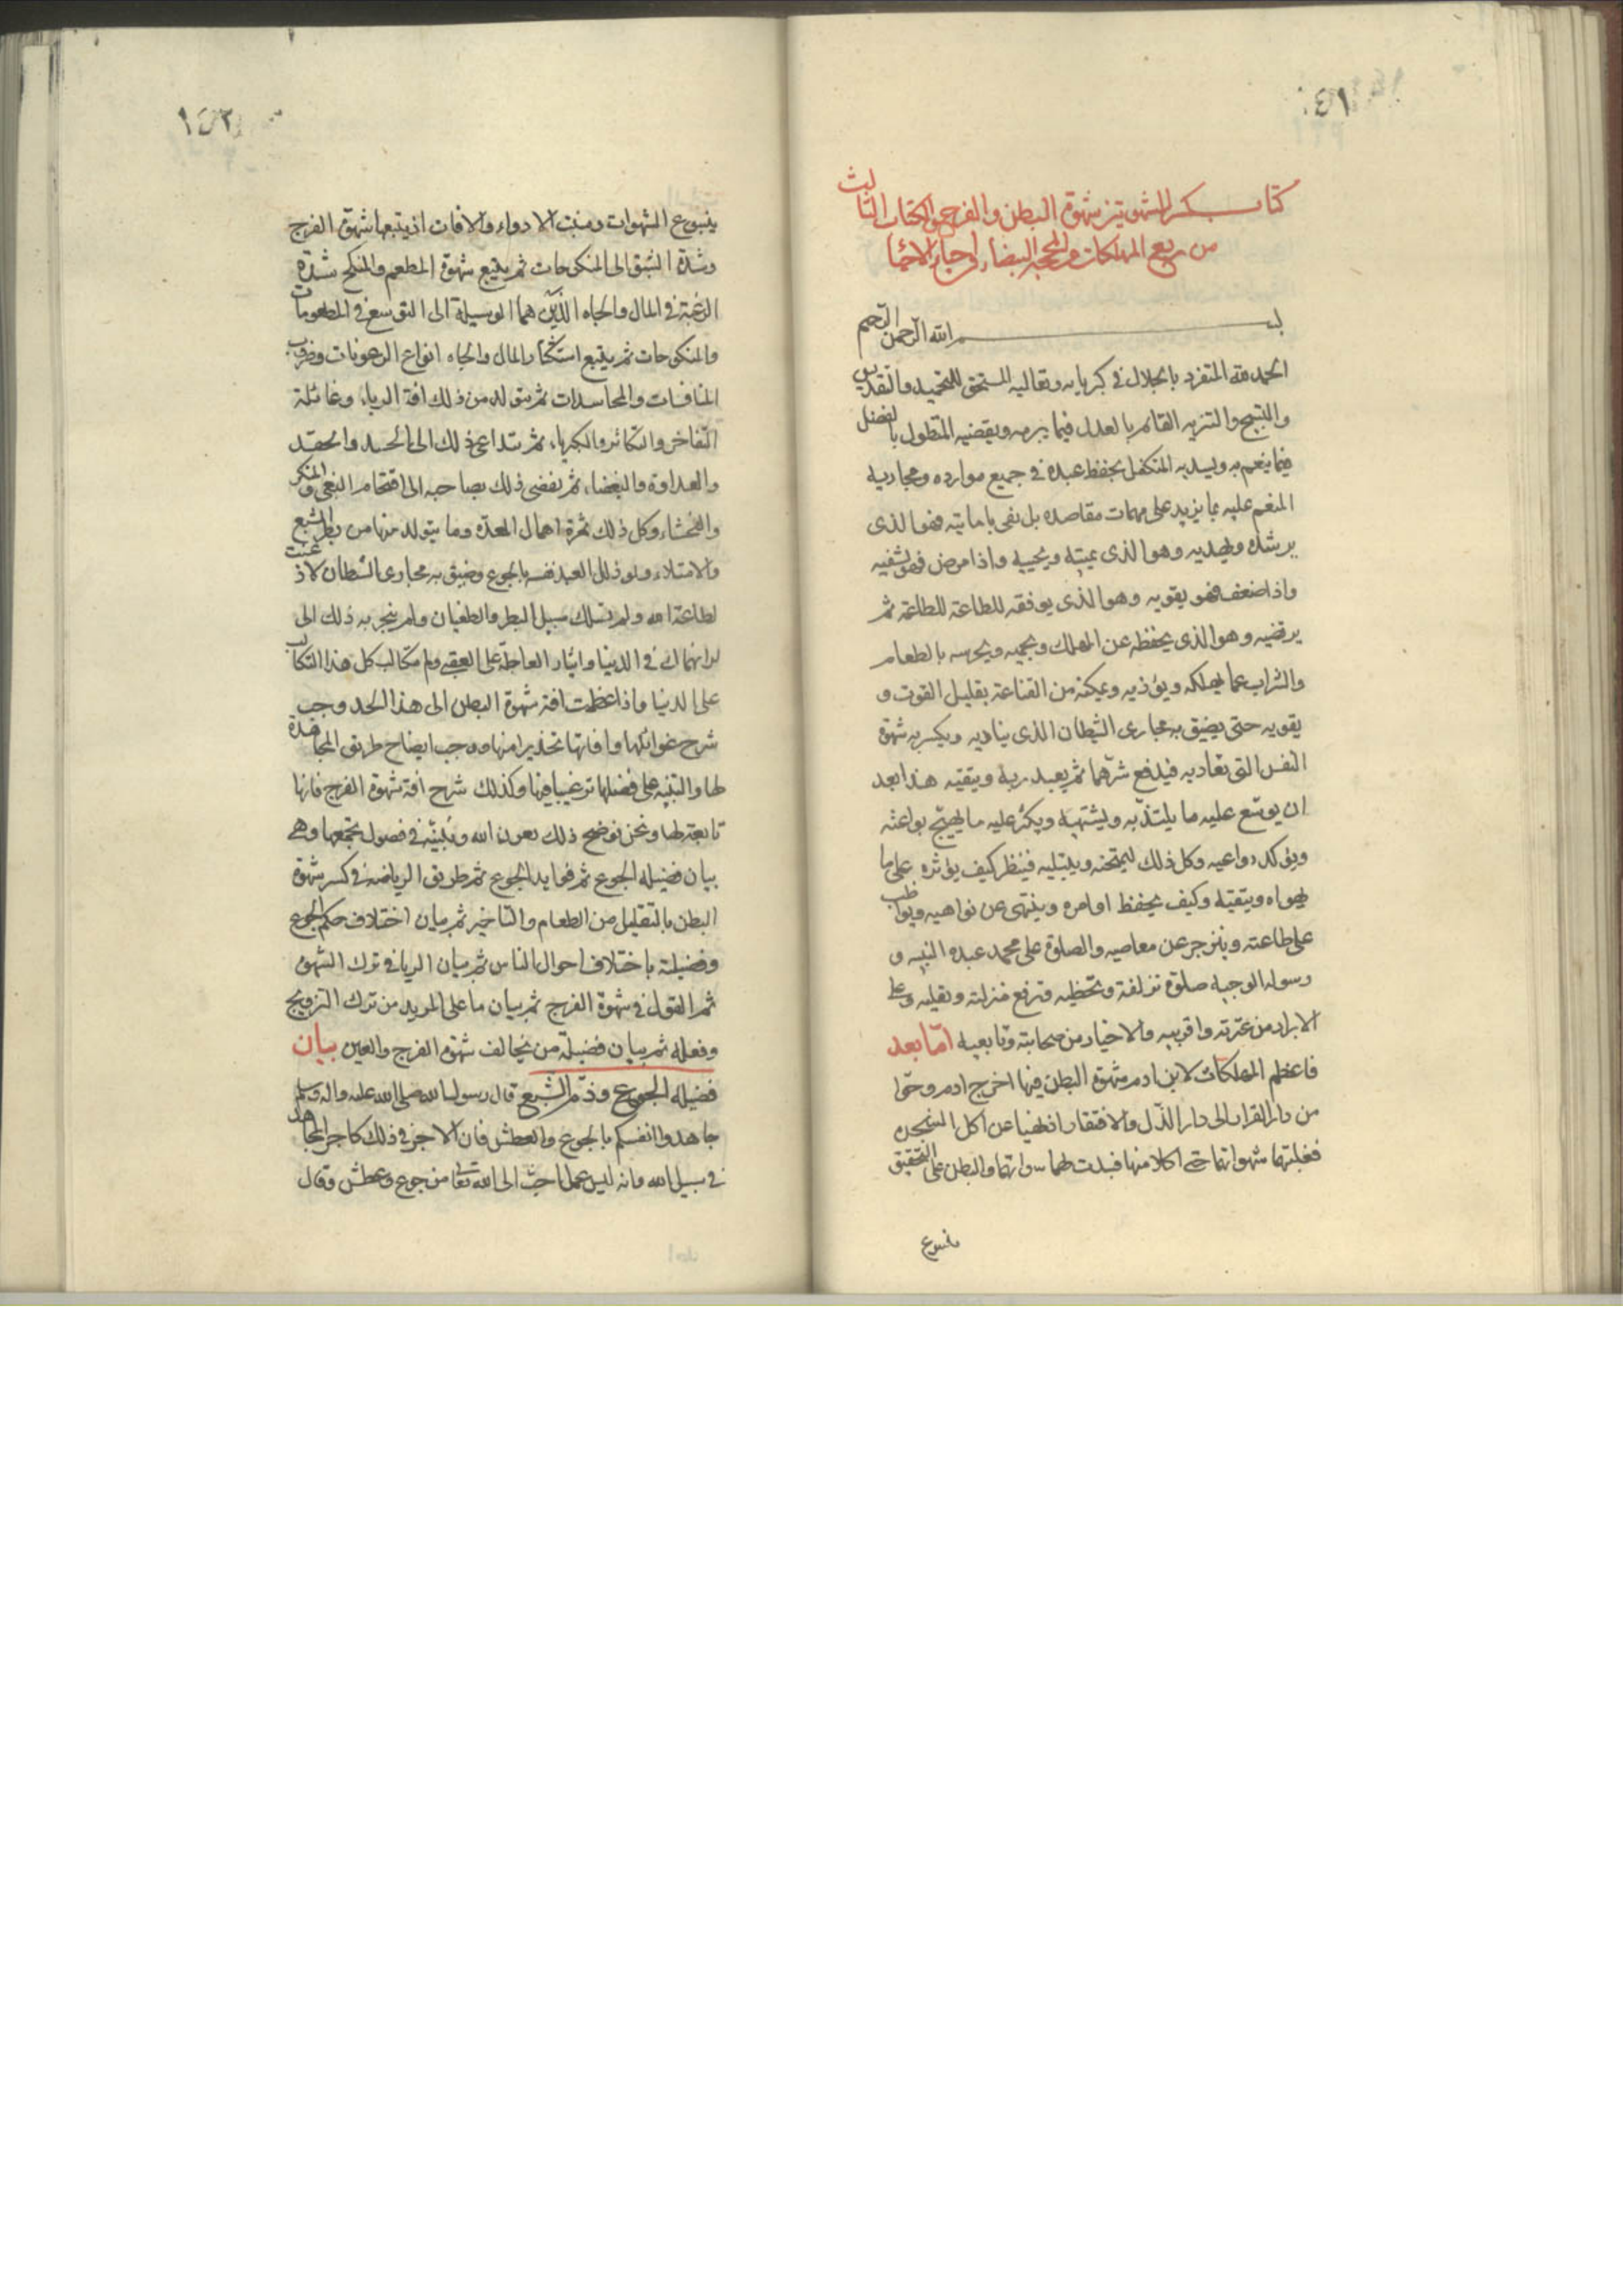 ١٤١
كتاب كسر الشهوتين شهوة البطن والفرج وهو الكتاب الثالث
من ربع المهلكات من المحجة البيضاء في احياء الاحيا
بسم الله الرحمن الرحيم
الحمد لله المتفرد بالجلال في كبريائه وتعاليه المستحق للتحميد والتقديس
والتسبيح والتنزيه القائم بالعدل فيما يبرمه ويقضيه المتطول بالفضل
فيما ينعم به ويسديه المتكفل بحفظ عبده في جميع موارده ومجاريه
المنعم عليه بما يزيد على مهمات مقاصده بل يفى بامانيه فهو الذى
يرشده ويهديه وهو الذى يميته ويحييه واذا مرض فهو يشفيه
واذا ضعف فهو يقويه وهو الذى يوفقه للطاعة للطاعة ثم
يرتضيه وهو الذى يحفظه عن المهلك ويحميه ويحرسه بالطعام
والشراب عما يهلكه ويؤذيه ويمكنه من القناعة بقليل القوت و
يقويه حتى يضيق به مجارى الشيطان الذى يناديه ويكسر به شهوة
النفس التى تعاديه فيدفع شرهما ثم يعبد ربه ويتقيه هذا بعد
ان يوسّع عليه ما يلتذّ به ويشتهيه ويكثر عليه ما يهيّج بواعثه
ويؤكد دواعيه وكل ذلك ليمتحنه ويبتليه فينظر كيف يؤثره على ما
يهواه ويتقيه وكيف يحفظ اوامره وينتهى عن نواهيه ويواظب
على طاعته وينزجر عن معاصيه والصلوة على محمد عبده النبيه و
رسوله الوجيه صلوة تزلفه وتحظيه وترفع منزلته وتعليه وعلى
الابرار من عترته واقربيه والاخيار من صحابته وتابعيه امّا بعد
فاعظم المهلكات لابن ادم شهوة البطن فبها اخرج ادم وحوّا
من دار القرار الى دار الذّل والافتقار اذ نهيا عن اكل الشجرة
فغلبتهما شهواتهما حتى اكلا منها فبدت لهما سواتهما والبطن على التحقيق
ينبوع
١٤٢
ينبوع الشهوات ومنبت الادواء والافات اذ يتبعها شهوة الفرج
وشدة الشبق الى المنكوحات ثم يتبع شهوة المطعم والمنكح شدة
الرغبة في المال والجاه الذين هما الوسيلة الى التوسع في المطعومات
والمنكوحات ثم يتبع استكثار المال والجاه انواع الرعونات وضروب
المنافسات والمحاسدات ثم يتولد من ذلك افة الرياء وغائلة
التفاخر والتكاثر والكبرياء ثم يتداعى ذلك الى الحسد والحقد
والعداوة والبغضاء ثم يفضى ذلك بصاحبه الى اقتحام البغى والمنكر
والفحشاء وكل ذلك ثمرة اهمال المعدة وما يتولد منها من بطر الشبع
والامتلاء ولو ذلل العبد نفسه بالجوع وضيق به مجارى الشيطان لاذعنت
لطاعة الله ولم تسلك سبيل البطر والطغيان ولم ينجر به ذلك الى
الانهماك في الدنيا وايثار العاجلة على العقبى ولم يتكالب كل هذا التكالب
على الدنيا واذا عظمت افة شهوة البطن الى هذا الحد وجب
شرح غوائلها وافاتها تحذيرا منها ووجب ايضاح طريق المجاهدة
لها والتنبيه على فضلها ترغيبا فيها وكذلك شرح افة شهوة الفرج فانها
تابعة لها ونحن نوضح ذلك بعون الله ونبيّنه في فصول يجمعها وهى
بيان فضيلة الجوع ثم فوايد الجوع ثم طريق الرياضة في كسر شهوة
البطن بالتقليل من الطعام والتاخير ثم بيان اختلاف حكم الجوع
وفضيلته باختلاف احوال الناس ثم بيان الريا في ترك الشهوة
ثم القول في شهوة الفرج ثم بيان ما على المريد من ترك التزويج
وفعله ثم بيان فضيلة من يخالف شهوة الفرج والعين بيان
فضيلة الجوع وذمّ الشبع قال رسول الله صلى الله عليه واله وسلم
جاهدوا انفسكم بالجوع والعطش فان الاجر في ذلك كاجر المجاهد
في سبيل الله وانه ليس عمل احبّ الى الله تعا من جوع وعطش وقال